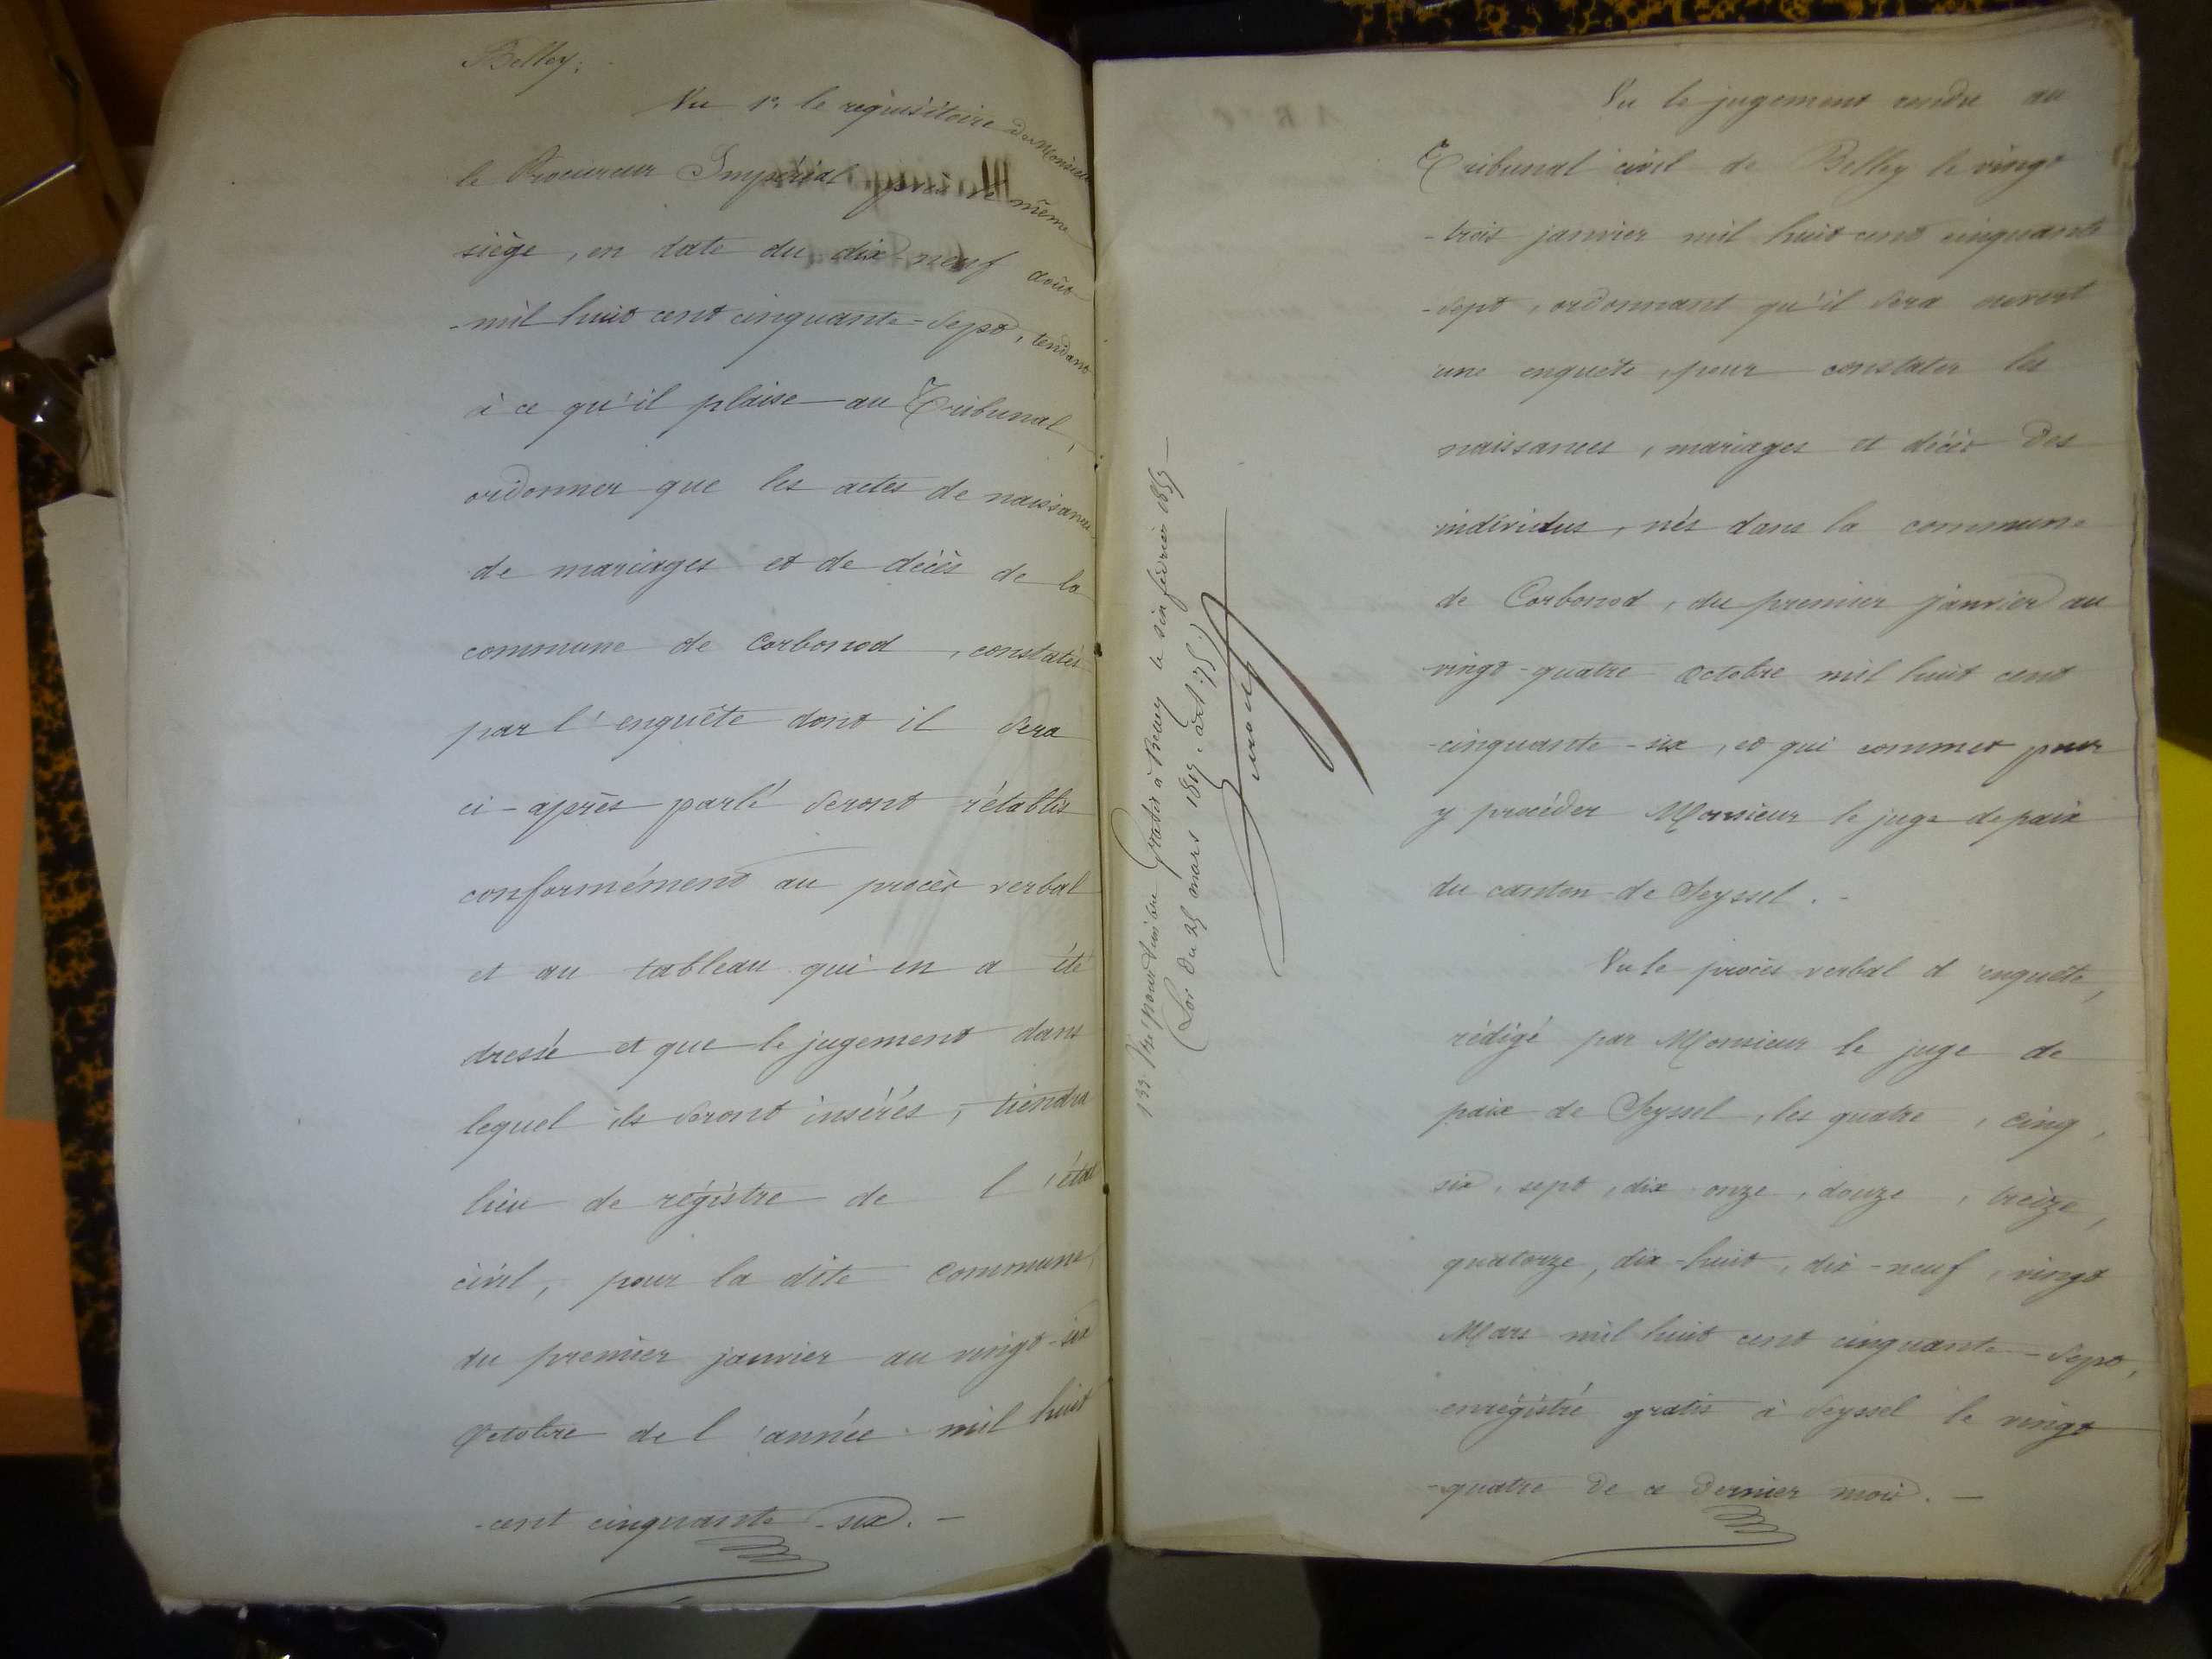 Belley;
Vu 1º le réquisitoire de Monsieur
le Procureur Impérial près le même
siège, en date du dix-neuf août
-mil huit cent cinquante-sept, tendant
à ce qu'il plaise au Tribunal,
ordonner que les actes de naissances
de mariages et de décès de la
commune de Corbonod, constatés
par l'enquête dont il sera
ci-après parlé seront rétablis
conformément au procès verbal
et au tableau qui en a été
dressé et que le jugement dans
lequel ils seront insérés, tiendra
lieu de régistre de l'état
civil, pour la dite commune,
du premier janvier au vingt-six
Octobre de l'année mil huit
-cent cinquante-six. -
pour timbre Gratis à Belley le six février 1857 -
(Loi du 25 mars 1817 art. 75.)
Vu le jugement rendu au
Tribunal civil de Belley le vingt
-trois janvier mil huit cent cinquante
-sept, ordonnant qu'il sera ouvert
une enquête, pour constater les
naissances, mariages et décès des
individus, nés dans la commune
de Corbonod, du premier janvier au
vingt-quatre Octobre mil huit cent
-cinquante-six, et qui commet pour
y procéder Monsieur le juge de paix
du canton de Seyssel. -
Vu le procès verbal d'enquête,
rédigé par Monsieur le juge de
paix de Seyssel, les quatre, cinq,
six, sept, dix onze, douze, treize,
quatorze, dix-huit, dix-neuf, vingt
Mars mil huit cent cinquante-sept,
enrégistré gratis à Seyssel le vingt
-quatre de ce dernier mois. -